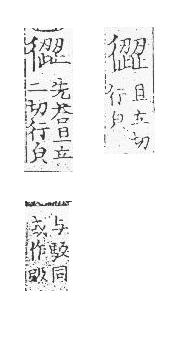 先荅且立
二切行皃
与馺同
或作
且立切
行皃